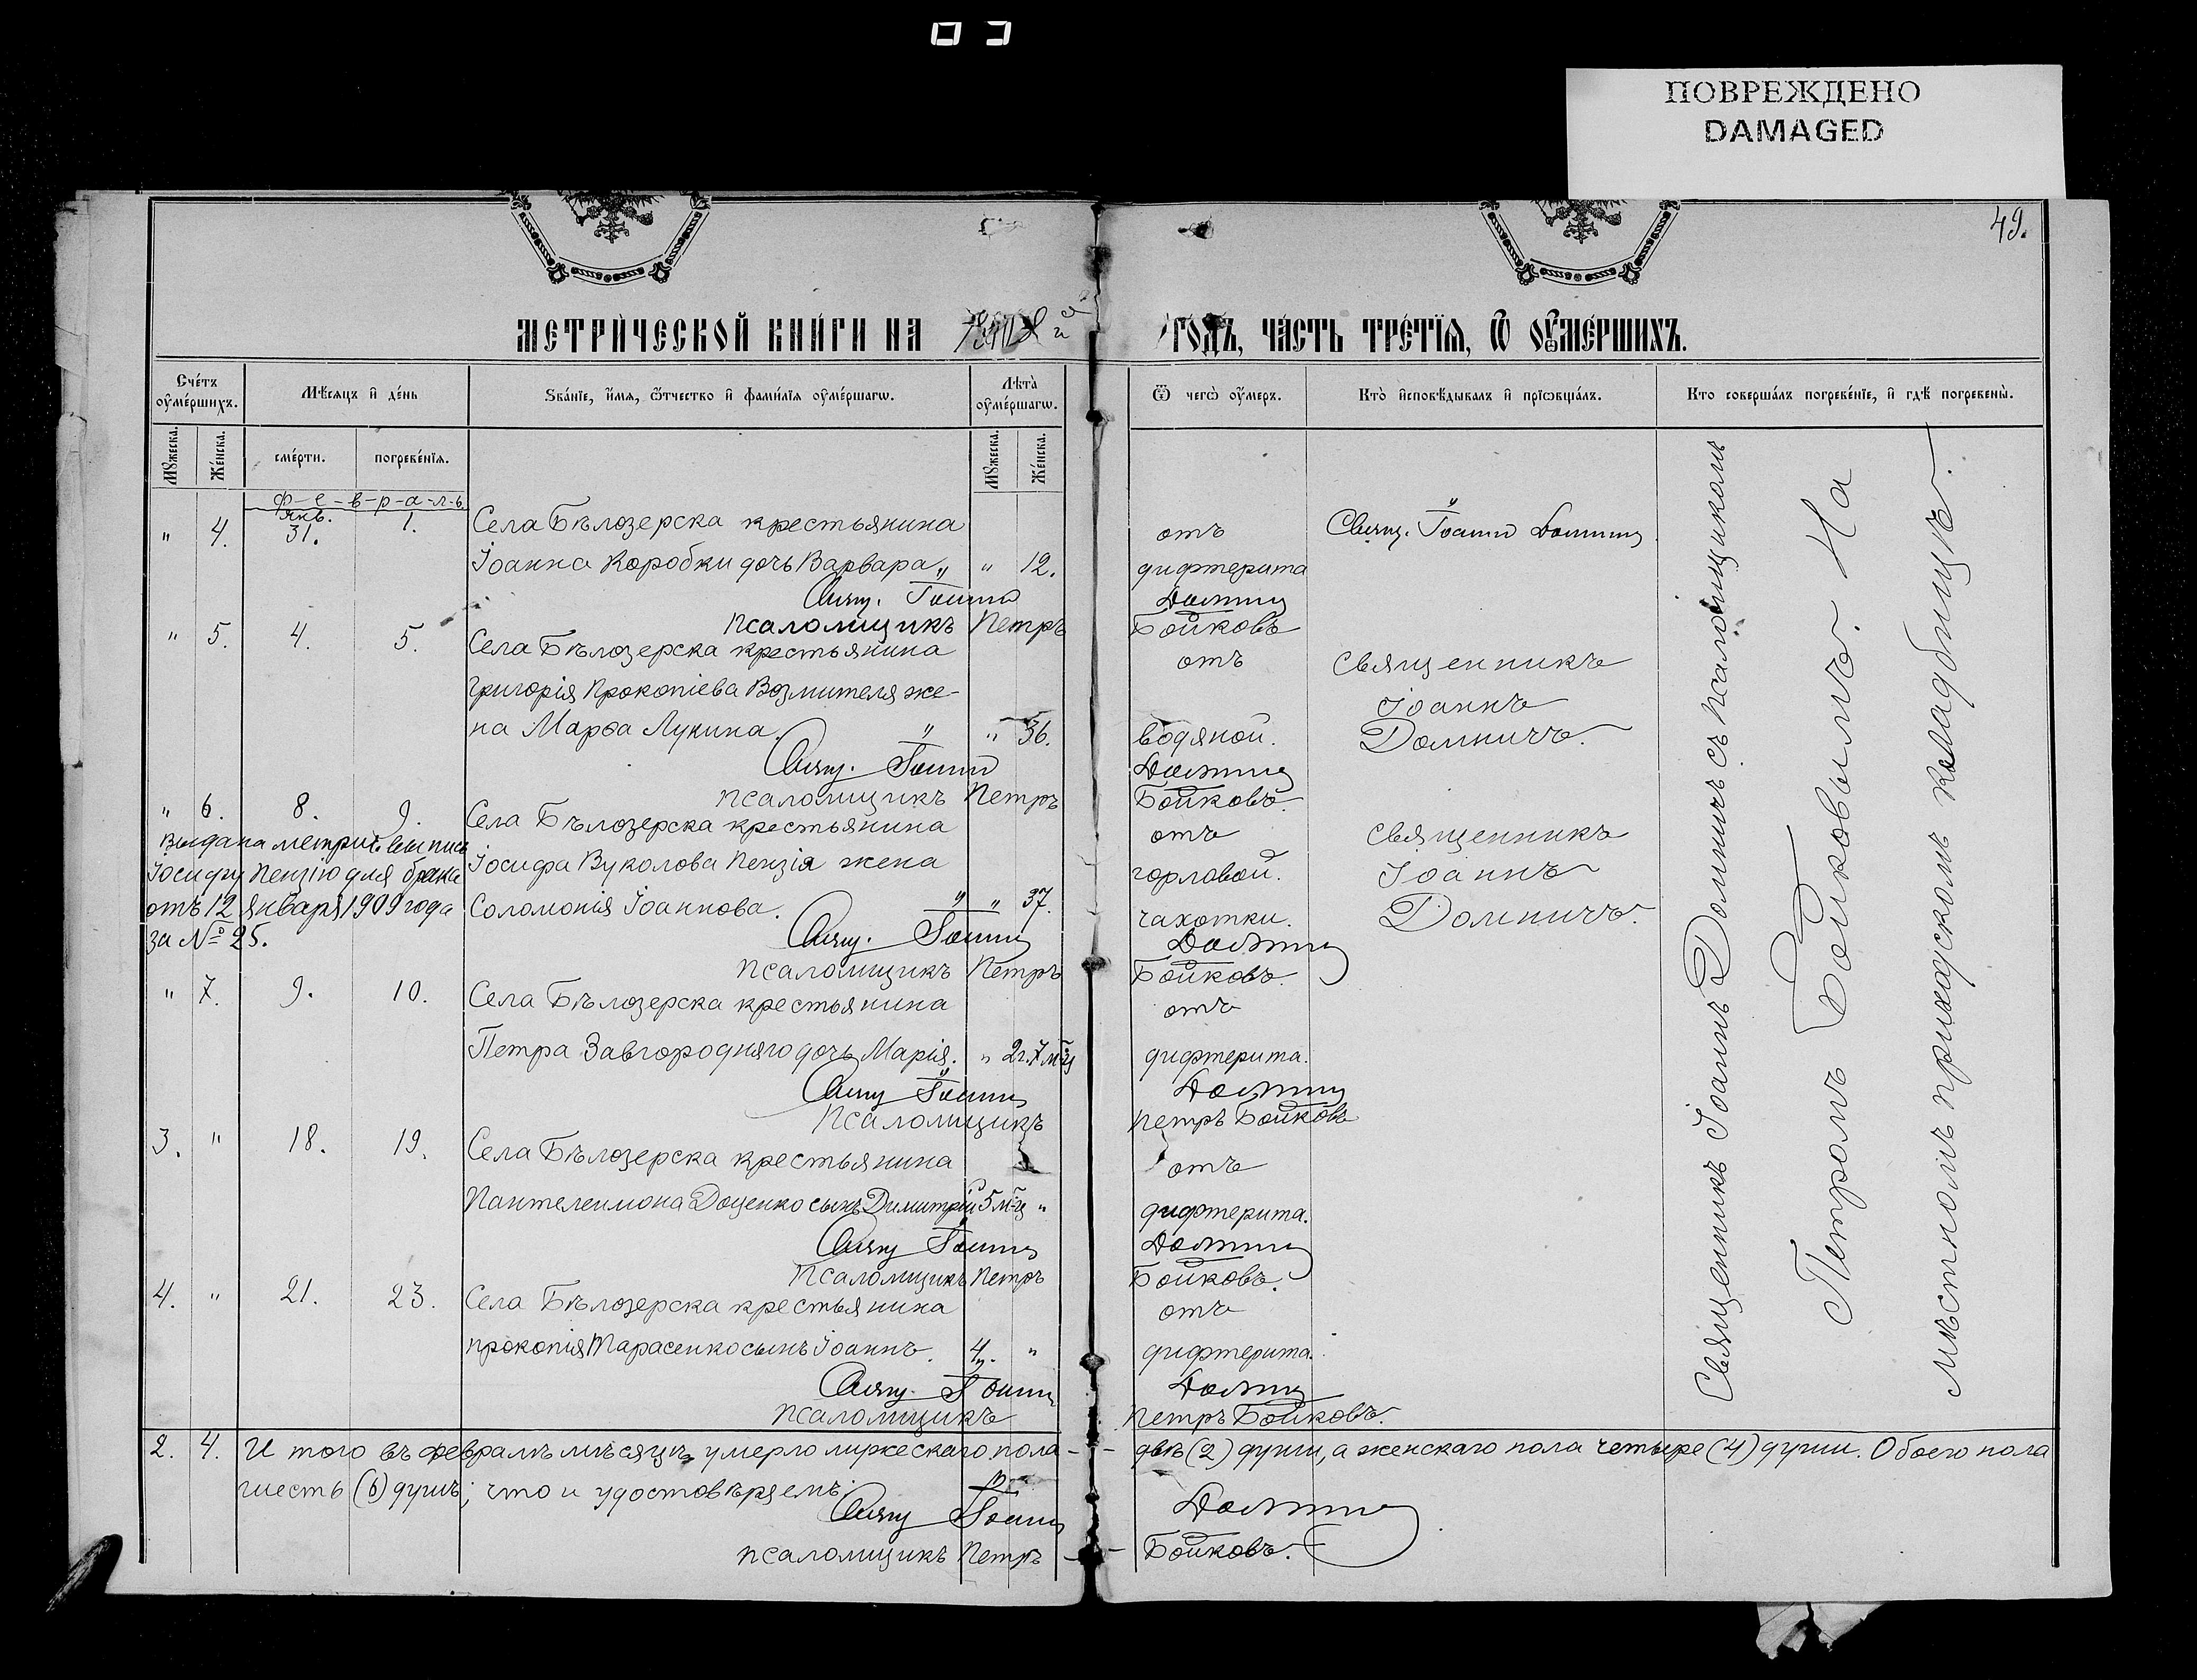 ПОВРЕЖДЕНО
DAMAGED
49.
МЕТРИЧЕСКОЙ КНИГИ НА
ГОДЪ, ЧАСТЬ ТРЕТІѦ, Ѿ ОУМЕРШИХЪ.
Счетъ оумершихъ.
Мѣсяцъ и день
Званіе, имя, ѿчество и фамилія оумершагѡ.
Лѣта оумершагѡ.
Ѿ чегѡ оумеръ.
Кто исповѣдывалъ и пріѡбщалъ.
Кто совершалъ погребеніе, и гдѣ погребены.
Мужеска.
Женска.
смерти.
погребенія.
Мужеска.
Женска.
Ф-е-в-р-а-л-ь
" 4. янв. 31. 1. Села Бѣлозерска крестьянина отъ Свящ. Іоаннъ Домничъ
Іоанна Коробки дочь Варвара „ " 12. дифтерита
Свящ. Іоаннъ Домничъ
Псаломщикъ Петръ Бойковъ
" 5. 4. 5. Села Бѣлозерска крестьянина отъ священникъ
Григорія Прокопіева Возмителя же- Іоаннъ
на Марѳа Лукина. " " 36. водяной. Домничъ.
Свящ. Іоаннъ Домничъ
псаломщикъ Петръ Бойковъ.
" 6. 8. 9. Села Бѣлозерска крестьянина отъ священникъ
Выдана метрич. выпись
Іосифу Пензію для брака
отъ 12 января 1909 года
за № 25.
Іосифа Вуколова Пензія жена горловой. Іоаннъ
Соломонія Іоаннова. " " 37. чахотки. Домничъ.
Свящ. Іоаннъ Домничъ
псаломщикъ Петръ Бойковъ.
" 7. 9. 10. Села Бѣлозерска крестьянина отъ
Петра Завгородняго дочь Марія. " 2 г. 7 м-ц дифтерита.
Свящ Іоаннъ Домничъ
Псаломщикъ Петръ Бойковъ
3. " 18. 19. Села Бѣлозерска крестьянина отъ
Пантелеимона Доценко сынъ Димитрій 5 м-ц " дифтерита.
Свящ Іоаннъ Домничъ
Псаломщикъ Петръ Бойковъ.
4. " 21. 23. Села Бѣлозерска крестьянина отъ
Прокопія Тарасенко сынъ Іоаннъ. 4 " дифтерита.
Свящ. Іоаннъ Домничъ
псаломщикъ Петръ Бойковъ.
Священникъ Іоаннъ Домничъ съ псаломщикомъ
Петромъ Бойковымъ. На
мѣстномъ приходскомъ кладбищѣ.
2. 4. И того въ февралѣ мѣсяцѣ умерло мужескаго пола - - двѣ (2) души, а женскаго пола четыре (4) души. Обоего пола
шесть (6) душъ; что и удостовѣряемъ:
Свящ Іоаннъ Домничъ
псаломщикъ Петръ - - Бойковъ.